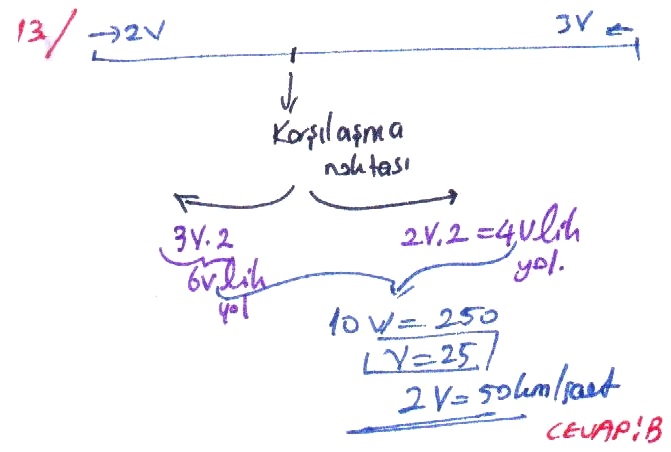 13/ →2V 3V ←
Karşılaşma
noktası
3V.2 2V.2 = 4Vlik
6Vlik yol.
yol
10V = 250
V = 25
2V = 50km/saat
CEVAP: B